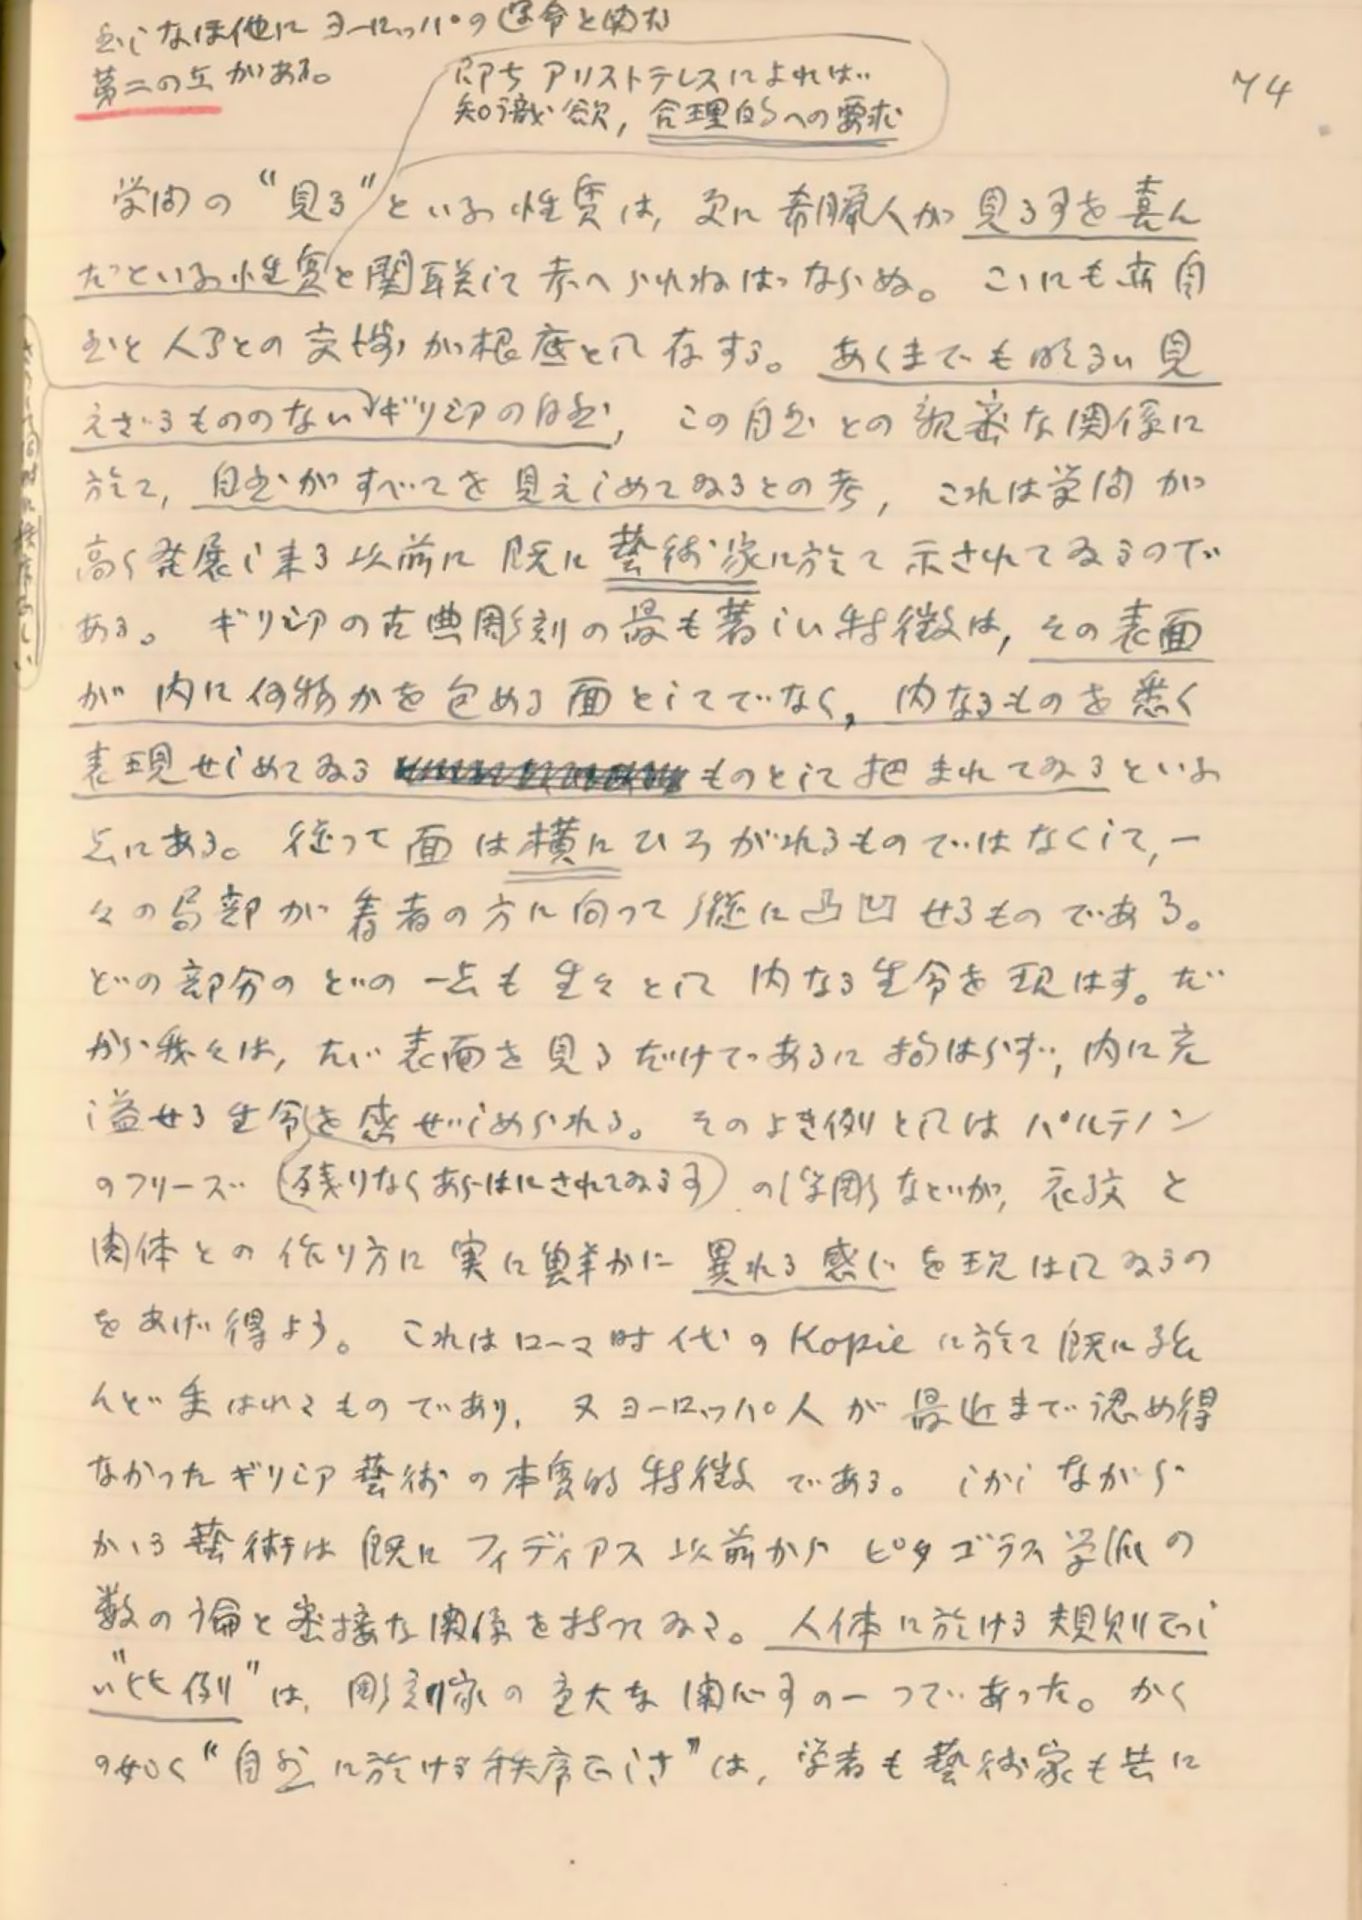 然しなほ他に ヨーロッパの運命と関する
第二の点がある。
即ち アリストテレスによれば
知識欲, 合理的への要求
74
学問の“見る”といふ性質は, 更に希臘人が見る事を喜ん
だといふ性質と関聯して考へられねばならぬ。こゝにも亦自
然と人間との交渉が根底として存する。あくまでも明るい見
えざるもののないギリシアの自然, この自然との親密な関係に
於て, 自然がすべてを見えしめてゐるとの考, これは学問が
高く発展し来る以前に既に藝術家に於て示されてゐるので
ある。ギリシアの古典彫刻の最も著しい特徴は, その表面
が内に何物かを包める面としてでなく, 内なるものを悉く
表現せしめてゐる ものとして把まれてゐるといふ
点にある。従って面は横にひろがれるものではなくして, 一
々の局部が着者の方に向って縦に凸凹せるものである。
どの部分のどの一点も生々として内なる生命を現はす。だ
から我々は, たゞ表面を見るだけであるに拘はらず, 内に充
溢せる生命を感ぜしめられる。そのよき例としてはパルテノン
のフリーズ (残りなくあらはにされてゐる事) の浮彫などが, 衣紋と
肉体との作り方に実に鮮かに異れる感じを現はしてゐるの
をあげ得よう。これはローマ時代のKopieに於て既に殆
んど失はれてものであり, 又ヨーロッパ人が最近まで認め得
なかったギリシア藝術の本質的特徴である。しかしながら
かゝる藝術は既にフィディアス以前からピタゴラス学派の
数の論と密接な関係を持ってゐる。人体に於ける規則正し
い“比例”は, 彫刻家の重大な関心事の一つであった。かく
の如く“自然に於ける秩序正しさ”は, 学者も藝術家も共に